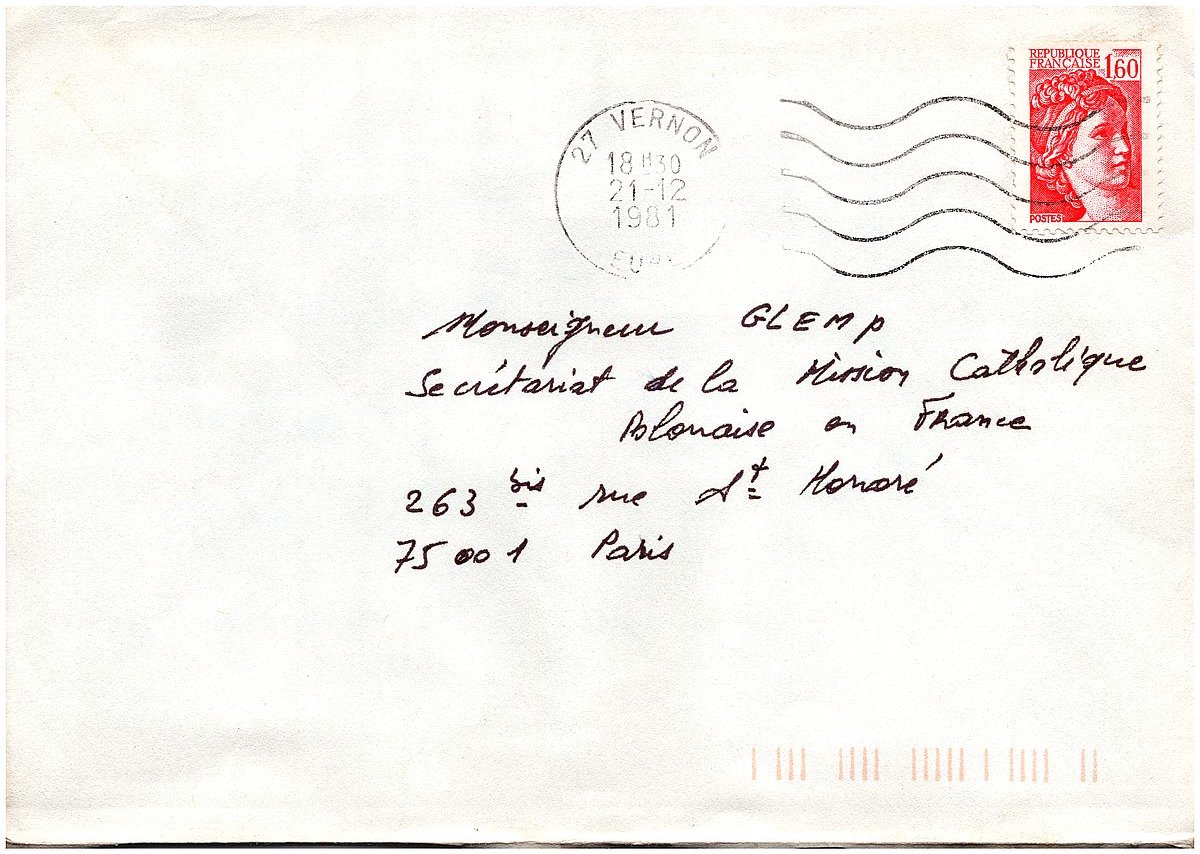 REPUBLIQUE
FRANÇAISE 1,60
POSTES
27 VERNON
18H30
21-12
1981
Monseigneur GLEMP
Secrétariat de la Mission Catholique
Polonaise en France
263 bis rue St Honoré
75001 Paris